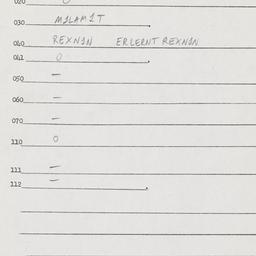 020 O
030 MILAMIT
040 REXNIN ERLERNT REXNIN
041 O
050 —
060 —
070 —
110 O
111 —
112 —